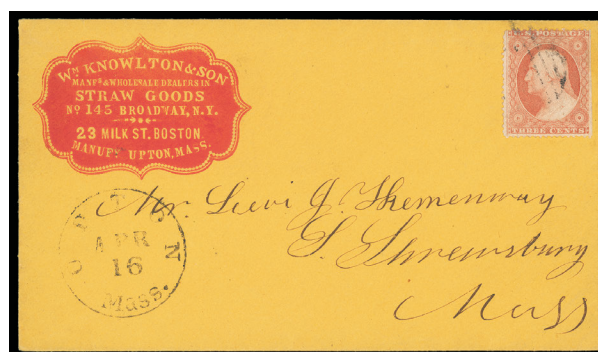 Wm KNOWLTON & SON
MANFS & WHOLESALE DEALERS IN
STRAW GOODS
No 145 BROADWAY, N.Y.
23 MILK ST. BOSTON
MANUFY UPTON, MASS.
U.S. POSTAGE
THREE CENTS
UPTON
APR
16
Mass.
Mr. Levi J. Hemenway
S. Shrewsbury
Mass